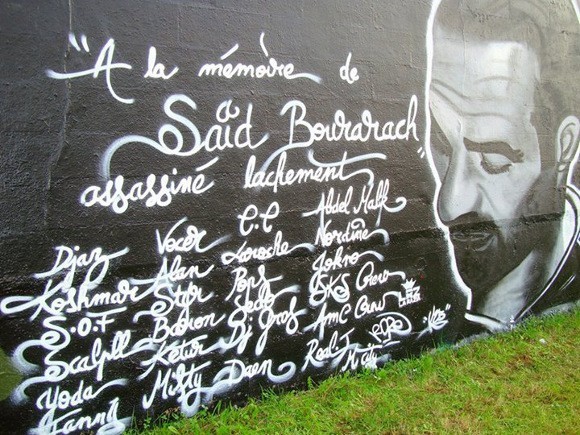 "A la mémoire de
Saïd Bourarach"
assassiné lachement
Djaz Vocer C.C Abdel Malk
Koshmar Alan Laroche Nordine
S.O.F Styr Pons Jokro
Scalpll Baron SKS Crew
Yoda Ketur Dj Graf AMC Crew
Fanny Misty Daen Real J